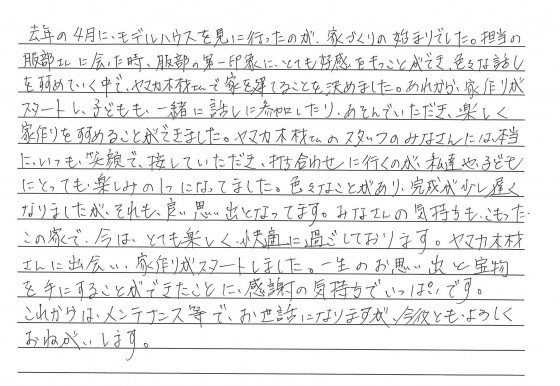 去年の4月に、モデルハウスを見に行ったのが、家づくりの始まりでした。担当の
服部さんに会った時、服部の第一印象に、とても好感をもつことができ、色々な話し
をすすめていく中で、ヤマカ木材さんで家を建てることを決めました。あれから、家作りが
スタートし、子どもも、一緒に話しに参加したり、あそんでいただき、楽しく
家作りをすすめることができました。ヤマカ木材さんのスタッフのみなさんには、本当
に、いつも、笑顔で、接していただき、打ち合わせに行くのが、私達や、子ども
にとっても楽しみの1つになってました。色々なことがあり、完成が少し遅く
なりましたが、それも、良い思い出となってます。みなさんの気持ちも、こもった
この家で、今は、とても楽しく、快適に過ごしております。ヤマカ木材
さんに出会い、家作りがスタートしました。一生のお思い出と宝物
を手にすることができたことに、感謝の気持ちでいっぱいです。
これからは、メンテナンス等で、お世話になりますが、今後とも、よろしく
おねがいします。